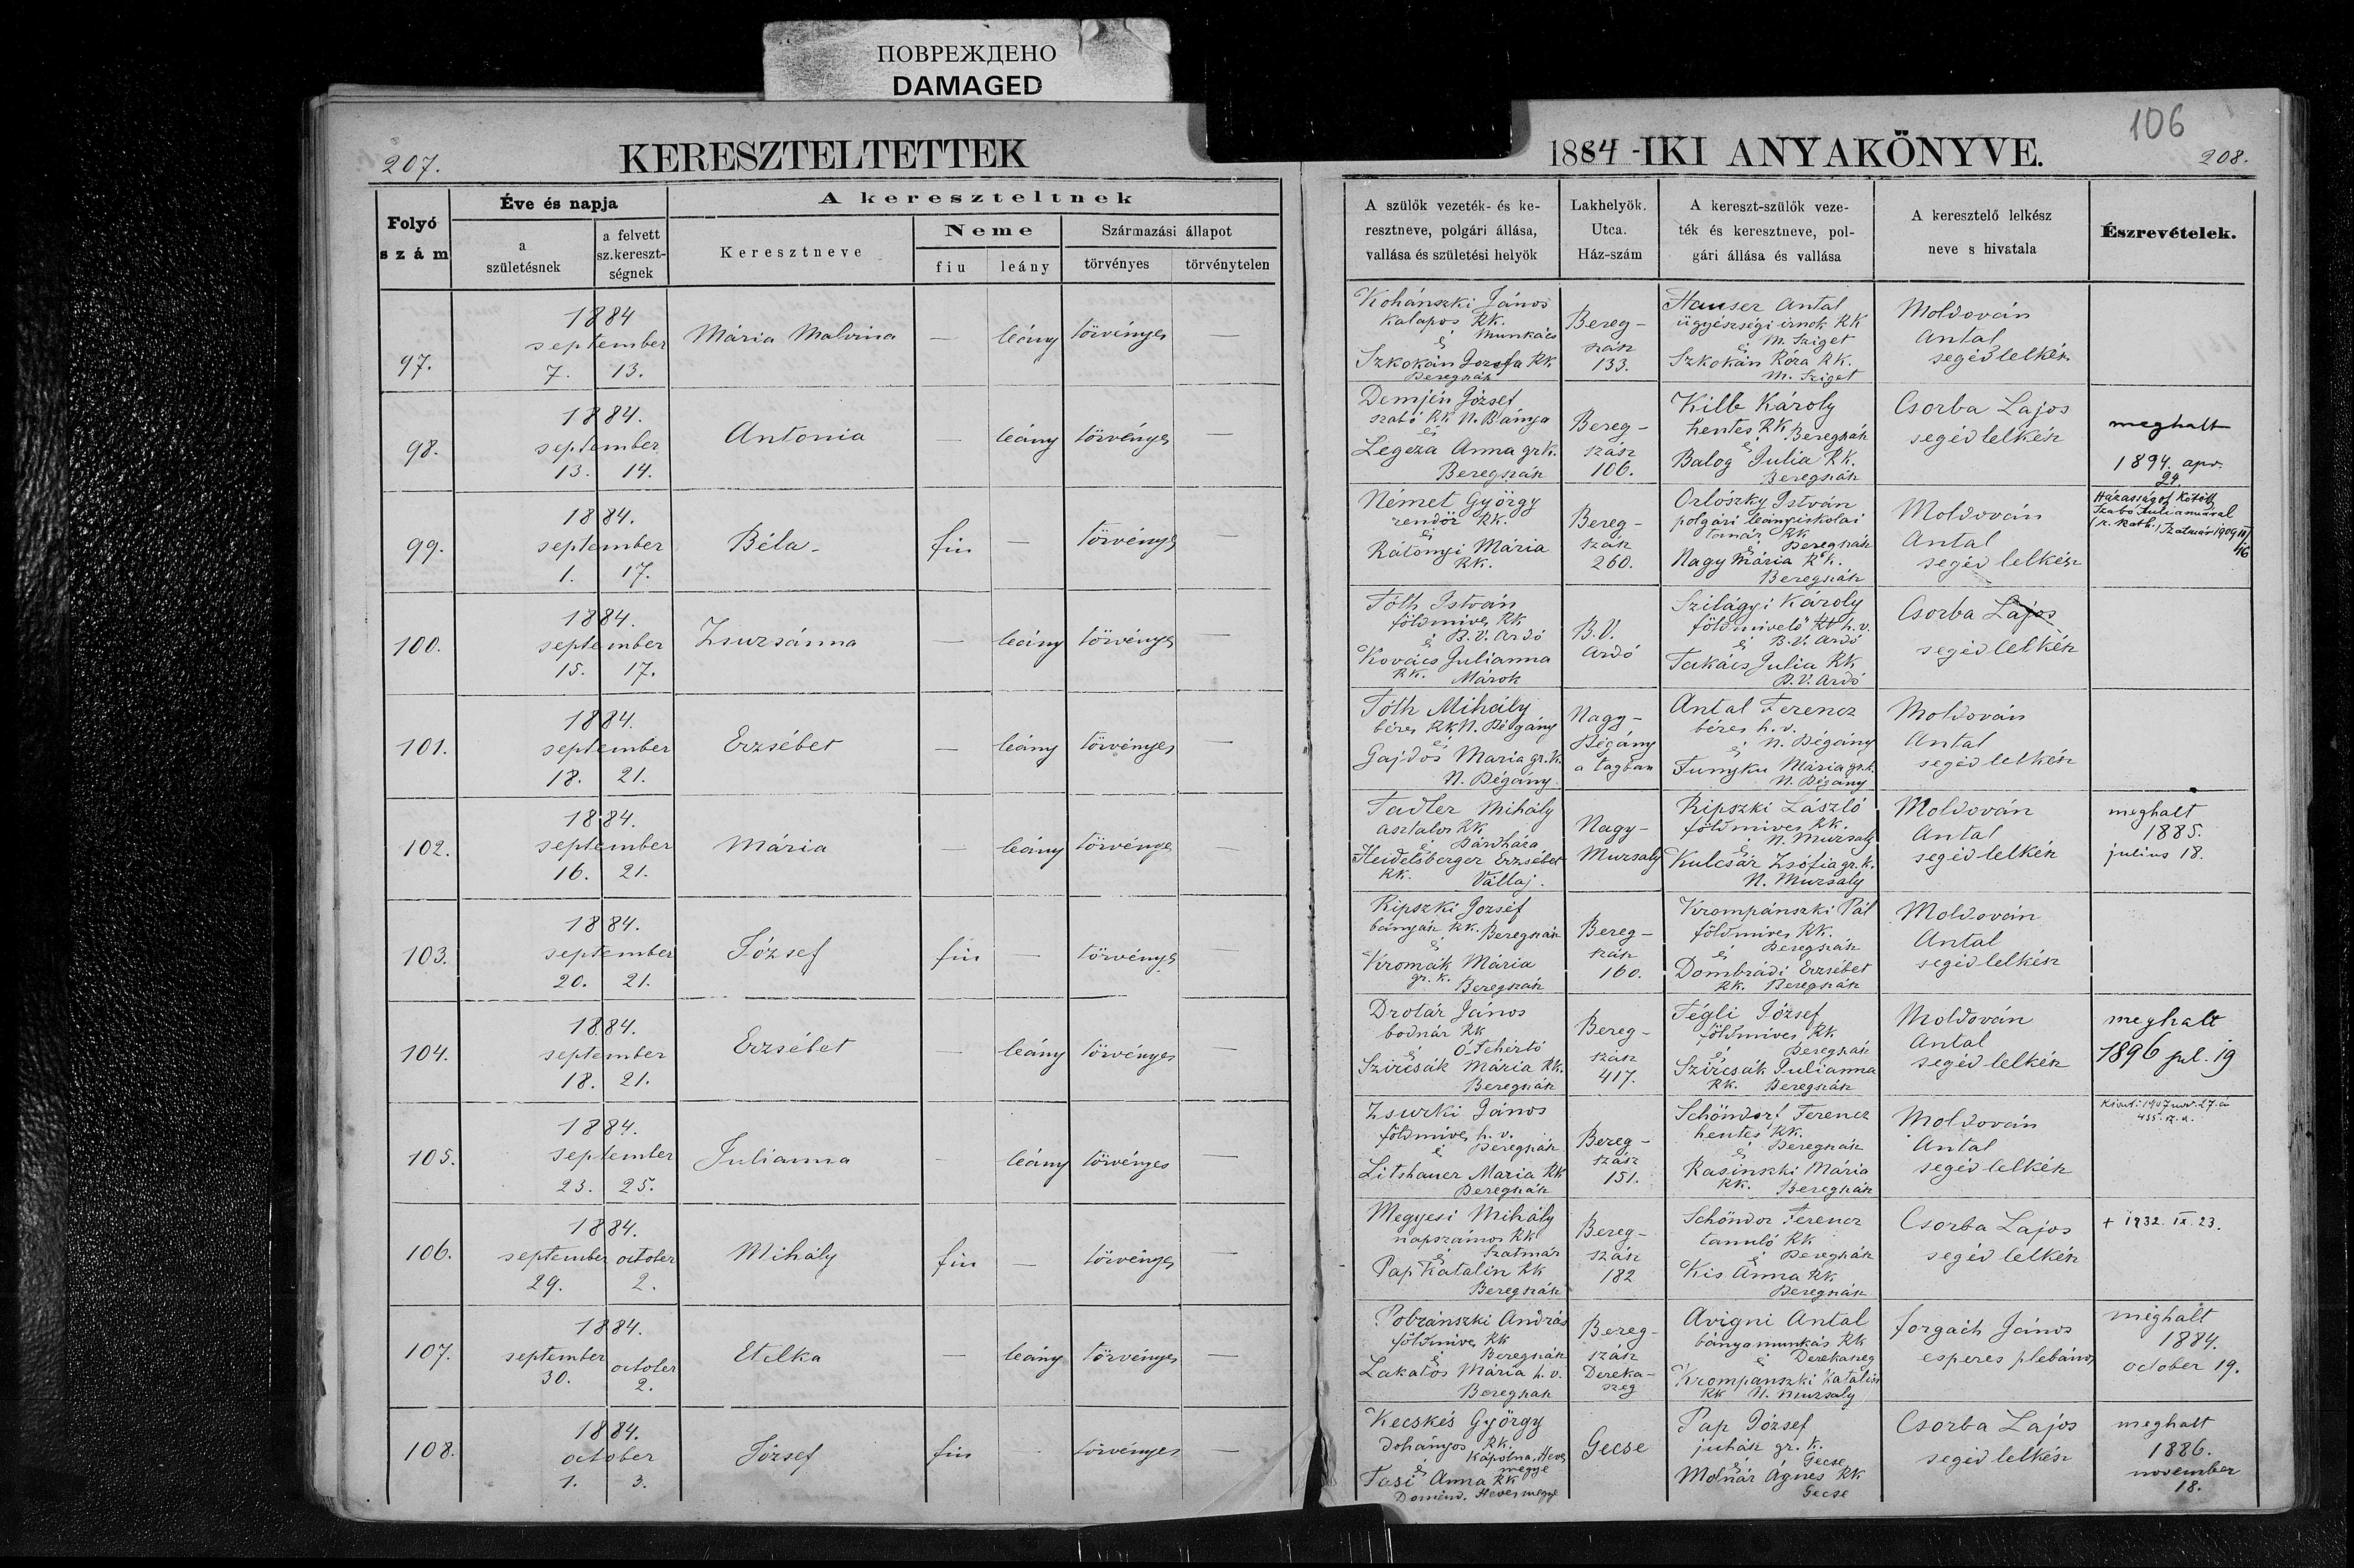 ПОВРЕЖДЕНО
DAMAGED
106
207.
KERESZTELTETTEK
1884-IKI ANYAKÖNYVE.
208.
Folyó szám
Éve és napja
a születésnek
a felvett sz.kereszt-ségnek
A kereszteltnek
Keresztneve
Neme
fiu
leány
Származási állapot
törvényes
törvénytelen
A szülők vezeték- és ke-
resztneve, polgári állása,
vallása és születési helyök
Lakhelyök.
Utca.
Ház-szám
A kereszt-szülők veze-
ték és keresztneve, pol-
gári állása és vallása
A keresztelő lelkész
neve s hivatala
Észrevételek.
97.
1884
september
7. 13.
Mária Malvina
—
leány
törvényes
—
Kohánszki János
kalapos RK.
é Munkács
Szkokán Jozefa RK
Beregszász
Bereg-
szász
133.
Hauser Antal
ügyészségi irnok RK
é M. Sziget
Szkokán Róza RK.
M. Sziget
Moldován
Antal
segédlelkész
98.
1884.
september
13. 14.
Antonia
—
leány
törvényes
—
Demjén József
szabó RK N. Bánya
és
Legeza Anna grk.
Beregszász
Bereg-
szász
106.
Kilb Károly
hentes RK
é Beregszász
Balog Julia RK.
Beregszász
Csorba Lajos
segédlelkész
meghalt
1894. apr.
29.
99.
1884.
september
1. 17.
Béla
fiu
—
törvényes
—
Német György
rendőr RK.
és
Rátonyi Mária
RK.
Bereg-
szász
260.
Orlószky István
polgári leányiskolai
tanár RK
é Beregszász
Nagy Mária RK.
Beregszász
Moldován
Antal
segédlelkész
Házasságot kötött
Szabó Juliannával
(r. kath.) Szatmár 1909
100.
1884.
september
15. 17.
Zsuzsánna
—
leány
törvényes
—
Tóth István
földmives RK
é B.V. Ardó
Kovács Julianna
RK. Márok
B.V.
Ardó
Szilágyi Károly
földmivelő h.v.
é B.V. Ardó
Takács Julia RK
B.V. Ardó
Csorba Lajos
segédlelkész
101.
1884.
september
18. 21.
Erzsébet
—
leány
törvényes
—
Tóth Mihály
béres RK N. Bégány
és
Gajdos Maria gr.k.
N. Bégány
Nagy-
Bégány
a tagban
Antal Ferencz
béres h.v.
é N. Bégány
Funyku Mária gr.k.
N. Bégány
Moldován
Antal
segédlelkész
102.
1884.
september
16. 21.
Mária
—
leány
törvényes
—
Tadler Mihály
asztalos RK
é Bárdháza
Heidelsberger Erzsébet
RK. Vállaj.
Nagy-
Muzsaly
Ripszki László
földmives RK.
é N. Muzsaly
Kulcsár Zsófia gr.k.
N. Muzsaly
Moldován
Antal
segédlelkész
meghalt
1885.
julius 18.
103.
1884.
september
20. 21.
József
fiu
—
törvényes
—
Ripszki József
bányász RK. Beregszász
é
Kromák Mária
gr.k. Beregszász
Bereg-
szász
160.
Krompánszki Pál
földmives RK.
é Beregszász
Dombrádi Erzsébet
RK. Beregszász
Moldován
Antal
segédlelkész
104.
1884.
september
18. 21.
Erzsébet
—
leány
törvényes
—
Drotár János
bodnár RK
é Ó-Fehértó
Szircsák Mária RK.
Beregszász
Bereg-
szász
417.
Tégli József
földmives RK
é Beregszász
Szircsák Julianna
RK. Beregszász
Moldován
Antal
segédlelkész
meghalt
1896 jul. 19
105.
1884.
september
23. 25.
Julianna
—
leány
törvényes
—
Zsurki János
földmives h.v.
é Beregszász
Litshauer Maria RK
Beregszász
Bereg-
szász
151.
Schöndorf Ferencz
hentes RK.
é Beregszász
Rasinszki Mária
RK. Beregszász
Moldován
Antal
segédlelkész
106.
1884.
september october
29. 2.
Mihály
fiu
—
törvényes
—
Megyesi Mihály
napszámos RK
é Szatmár
Pap Katalin RK
Beregszász
Bereg-
szász
182
Schöndor Ferencz
tanuló RK
é Beregszász
Kis Anna RK
Beregszász
Csorba Lajos
segédlelkész
+ 1932. IX. 23.
107.
1884.
september october
30. 2.
Etelka
—
leány
törvényes
—
Pobránszki András
földmives RK
é Beregszász
Lakatos Mária h.v.
Beregszász
Bereg-
szász
Dereka-
szeg
Avigni Antal
bányamunkás RK
é Derekaszeg
Krompánszki Katalin
RK N. Muzsaly
Forgách János
esperes plebános
meghalt
1884.
october 19.
108.
1884.
october
1. 3.
József
fiu
—
törvényes
—
Kecskés György
dohányos RK.
é Kápolna, Heves
megye
Tasi Anna RK
Doménd. Hevesmegye
Gecse
Pap József
juhász gr.k.
é Gecse
Molnár Ágnes RK
Gecse
Csorba Lajos
segédlelkész
meghalt
1886.
november
18.